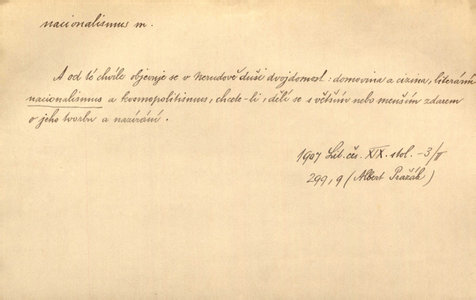 nacionalismus m.
A od té chvíle objevuje se v Nerudově duši dvojdomost: domovina a cizina, literární
nacionalismus a kosmopolitismus, chcete-li, dělí se s větším nebo menším zdarem
o jeho tvorbu a nazírání.
1907 Lit. čes. XIX. stol. -3/II
299,9 (Albert Pražák)